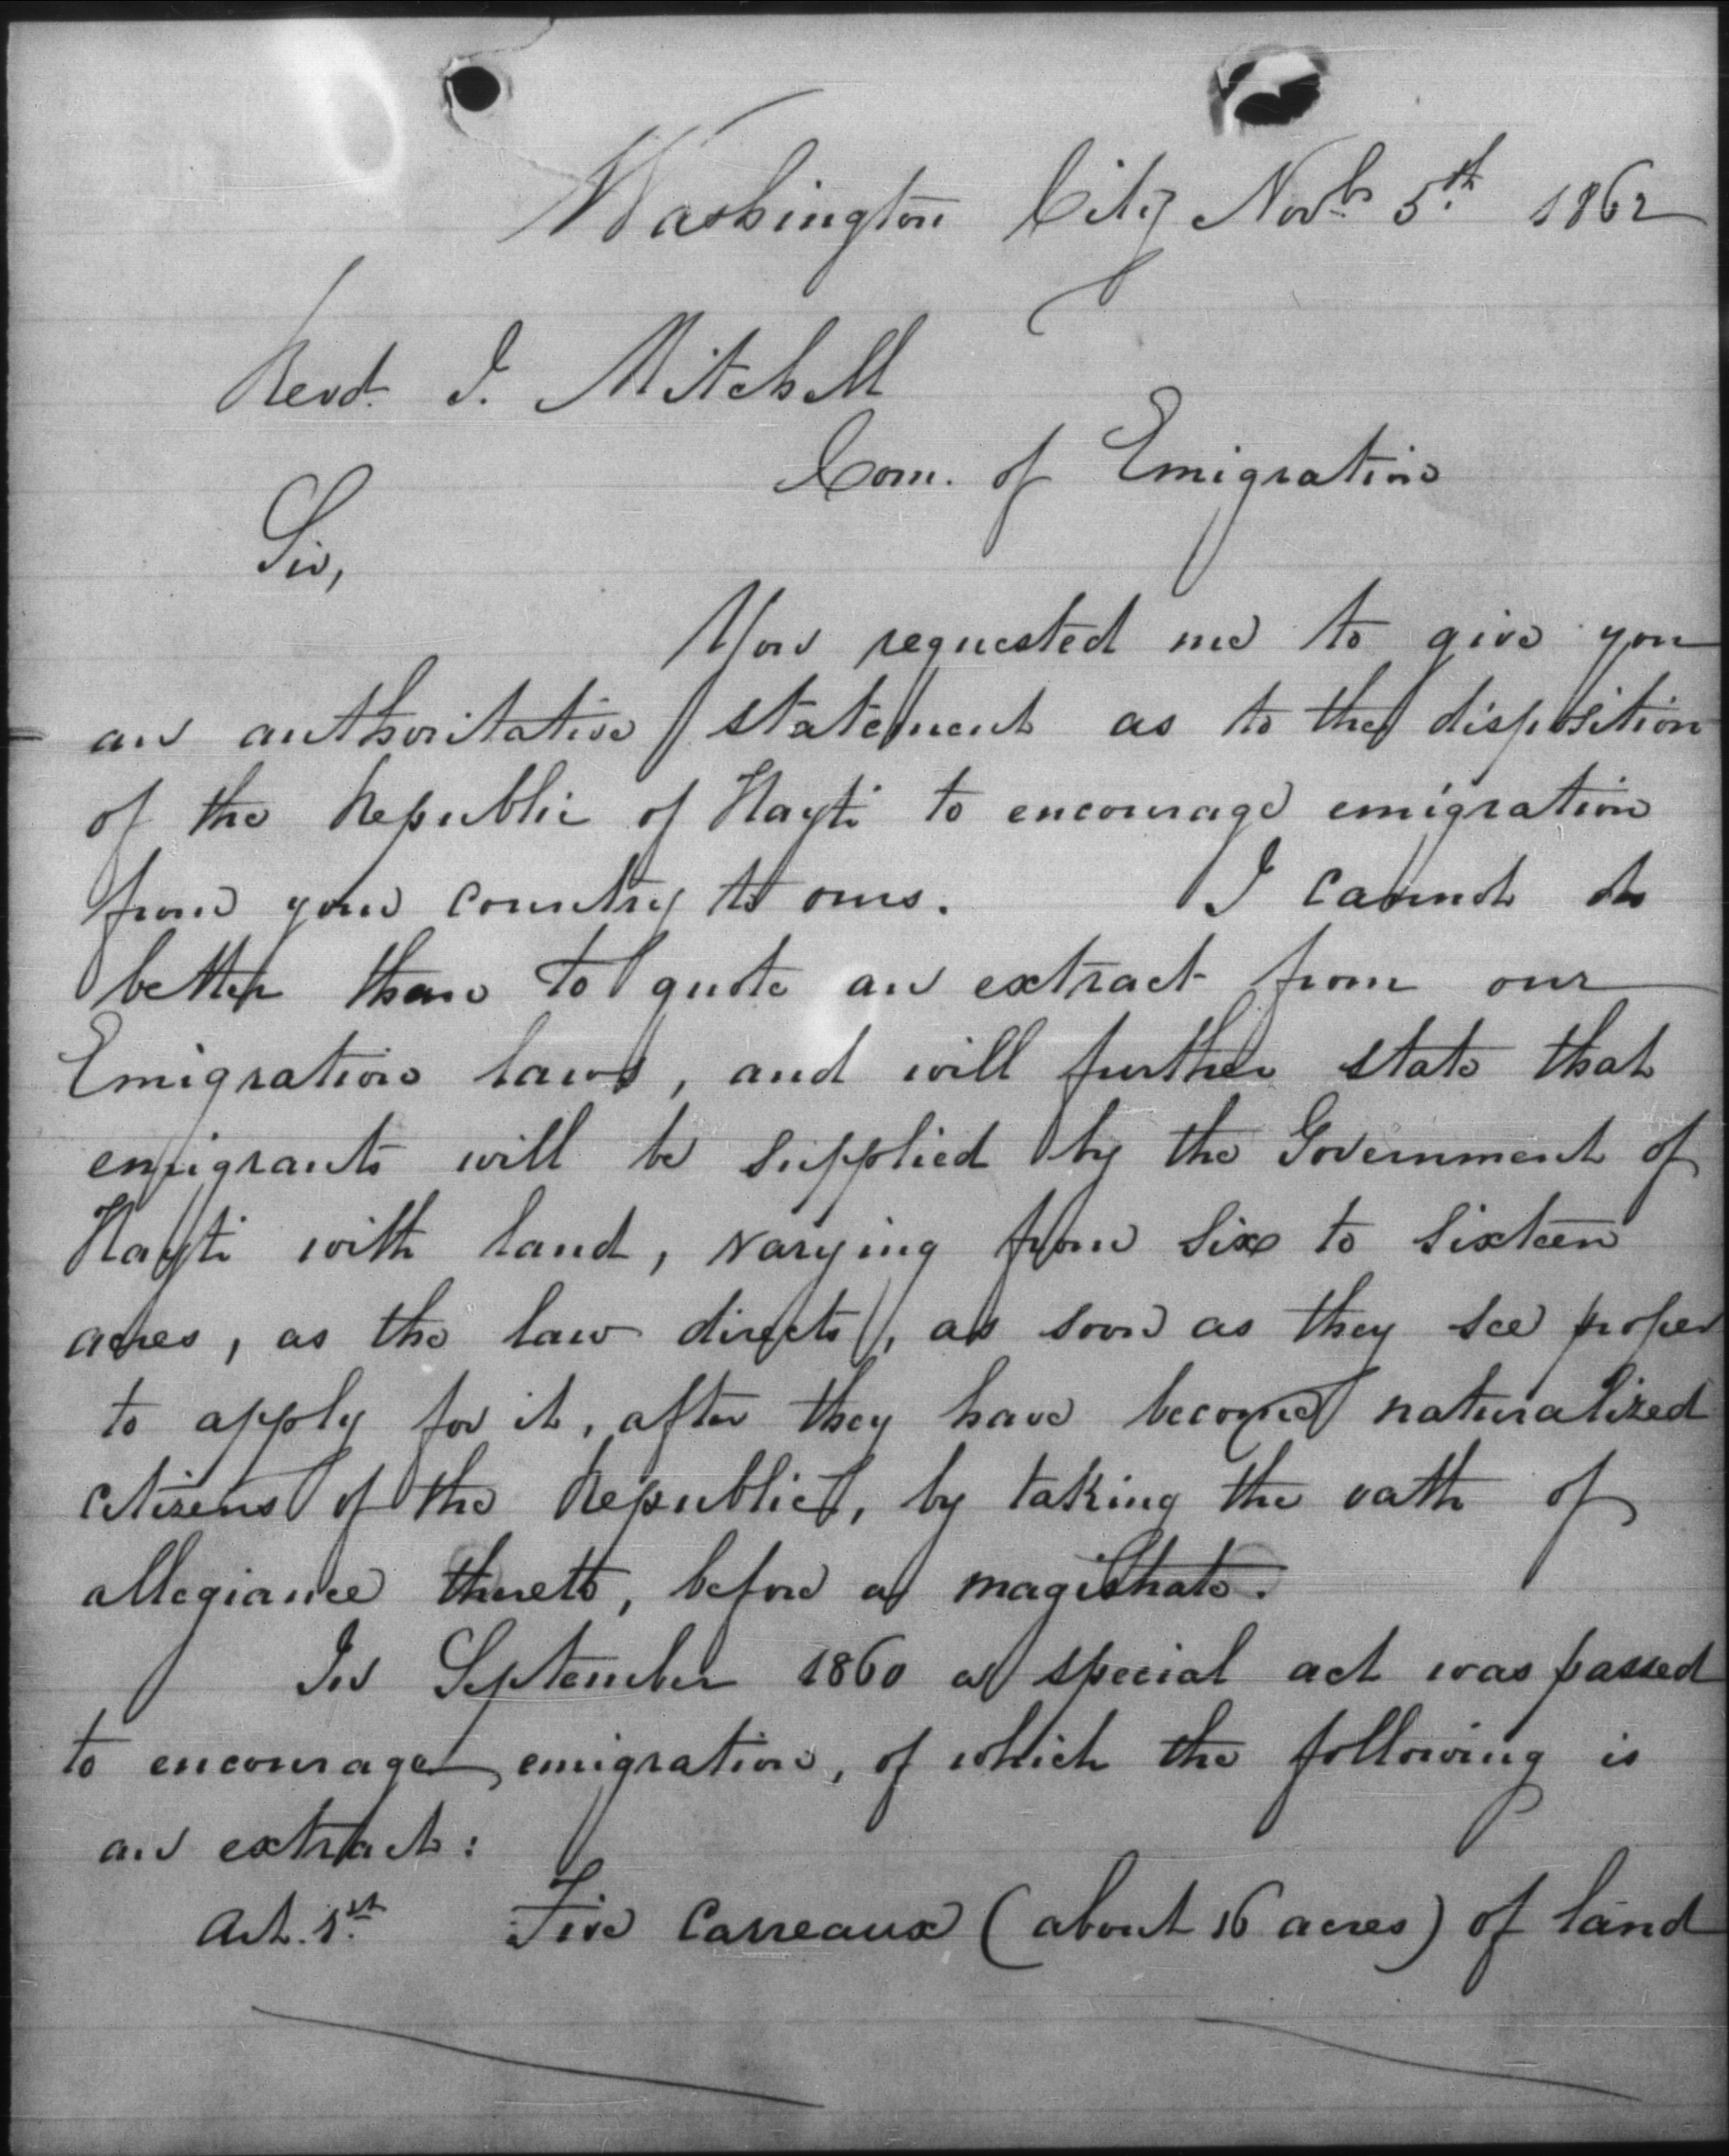 Washington City Novbr 5th 1862
Revd. J. Mitchell
Com. of Emigration
Sir,
You requested me to give you
an authoritative statement as to the disposition
of the Republic of Hayti to encourage emigration
from your country to ours. I cannot do
better than to quote an extract from our
Emigration laws, and will further state that
emigrants will be supplied by the Government of
Hayti with land, varying from six to sixteen
acres, as the law directs, as soon as they see proper
to apply for it, after they have become naturalized
citizens of the Republic, by taking the oath of
allegiance thereto, before a magistrate.
In September 1860 a special act was passed
to encourage emigration, of which the following is
an extract:
Art. 1st. Five Carreaux (about 16 acres) of land